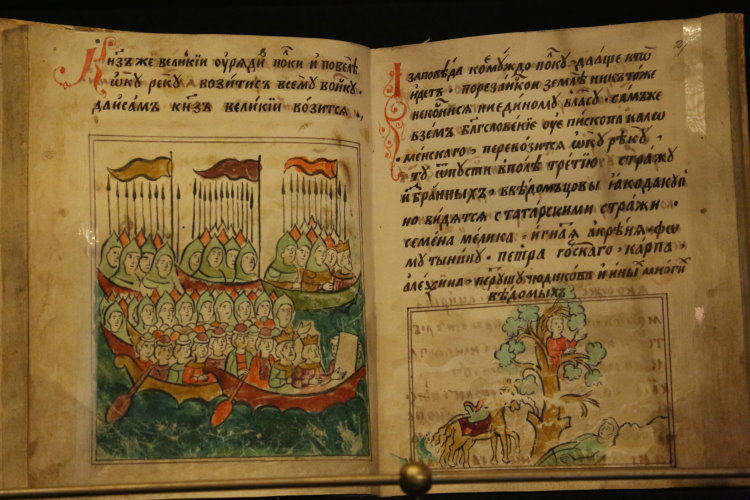 Кнѧзь же великїи оурѧди полки и повелѣ
ѡкꙋ рекꙋ возитисѧ всемꙋ войскꙋ
да и самъ кнѧзь великїи возитсѧ
И заповѣда комꙋждо полкꙋ даще кто
идетъ по резанской землѣ никтоже
не коснисѧ ни единомꙋ власꙋ самъ же
взем благословенїе ѹ епископа коло
менскаго перевозитсѧ ѡкꙋ рѣкꙋ
тꙋ ѿпꙋсти в поле третїю стражꙋ
избранныхъ в вѣдомцовы
но видятсѧ с татарскими стражи
семена мелика игнатїа
петра горскаго карпа
алеѯина и иныхъ многих
вѣдомыхъ